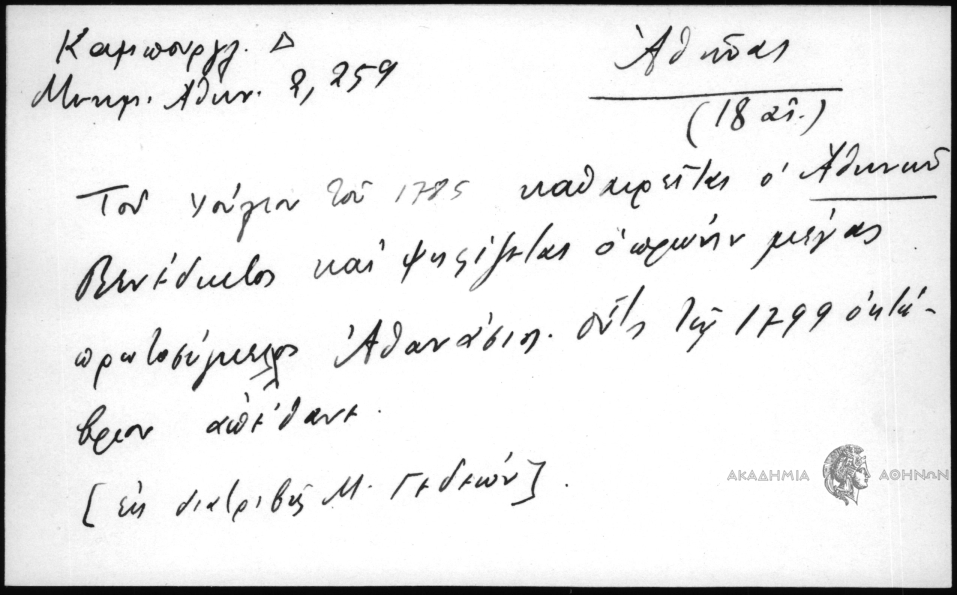 Καμπουργλ. Δ
Μνημ. Αθην. 2, 259
Ἀθήνας
(18 αἰ.)
Τὸν Ἰούλιον τοῦ 1785 καθαιρεῖται ὁ Ἀθηνῶν
Βενέδικτος καὶ ψηφίζεται ὁ πρώην μέγας
πρωτοσύγκελλος Ἀθανάσιος. οὗτος τῷ 1799 ὀκτώ-
βριον ἀπέθανε.
[ἐκ διατριβῆς Μ. Γεδεών].
ΑΚΑΔΗΜΙΑ ΑΘΗΝΩΝ